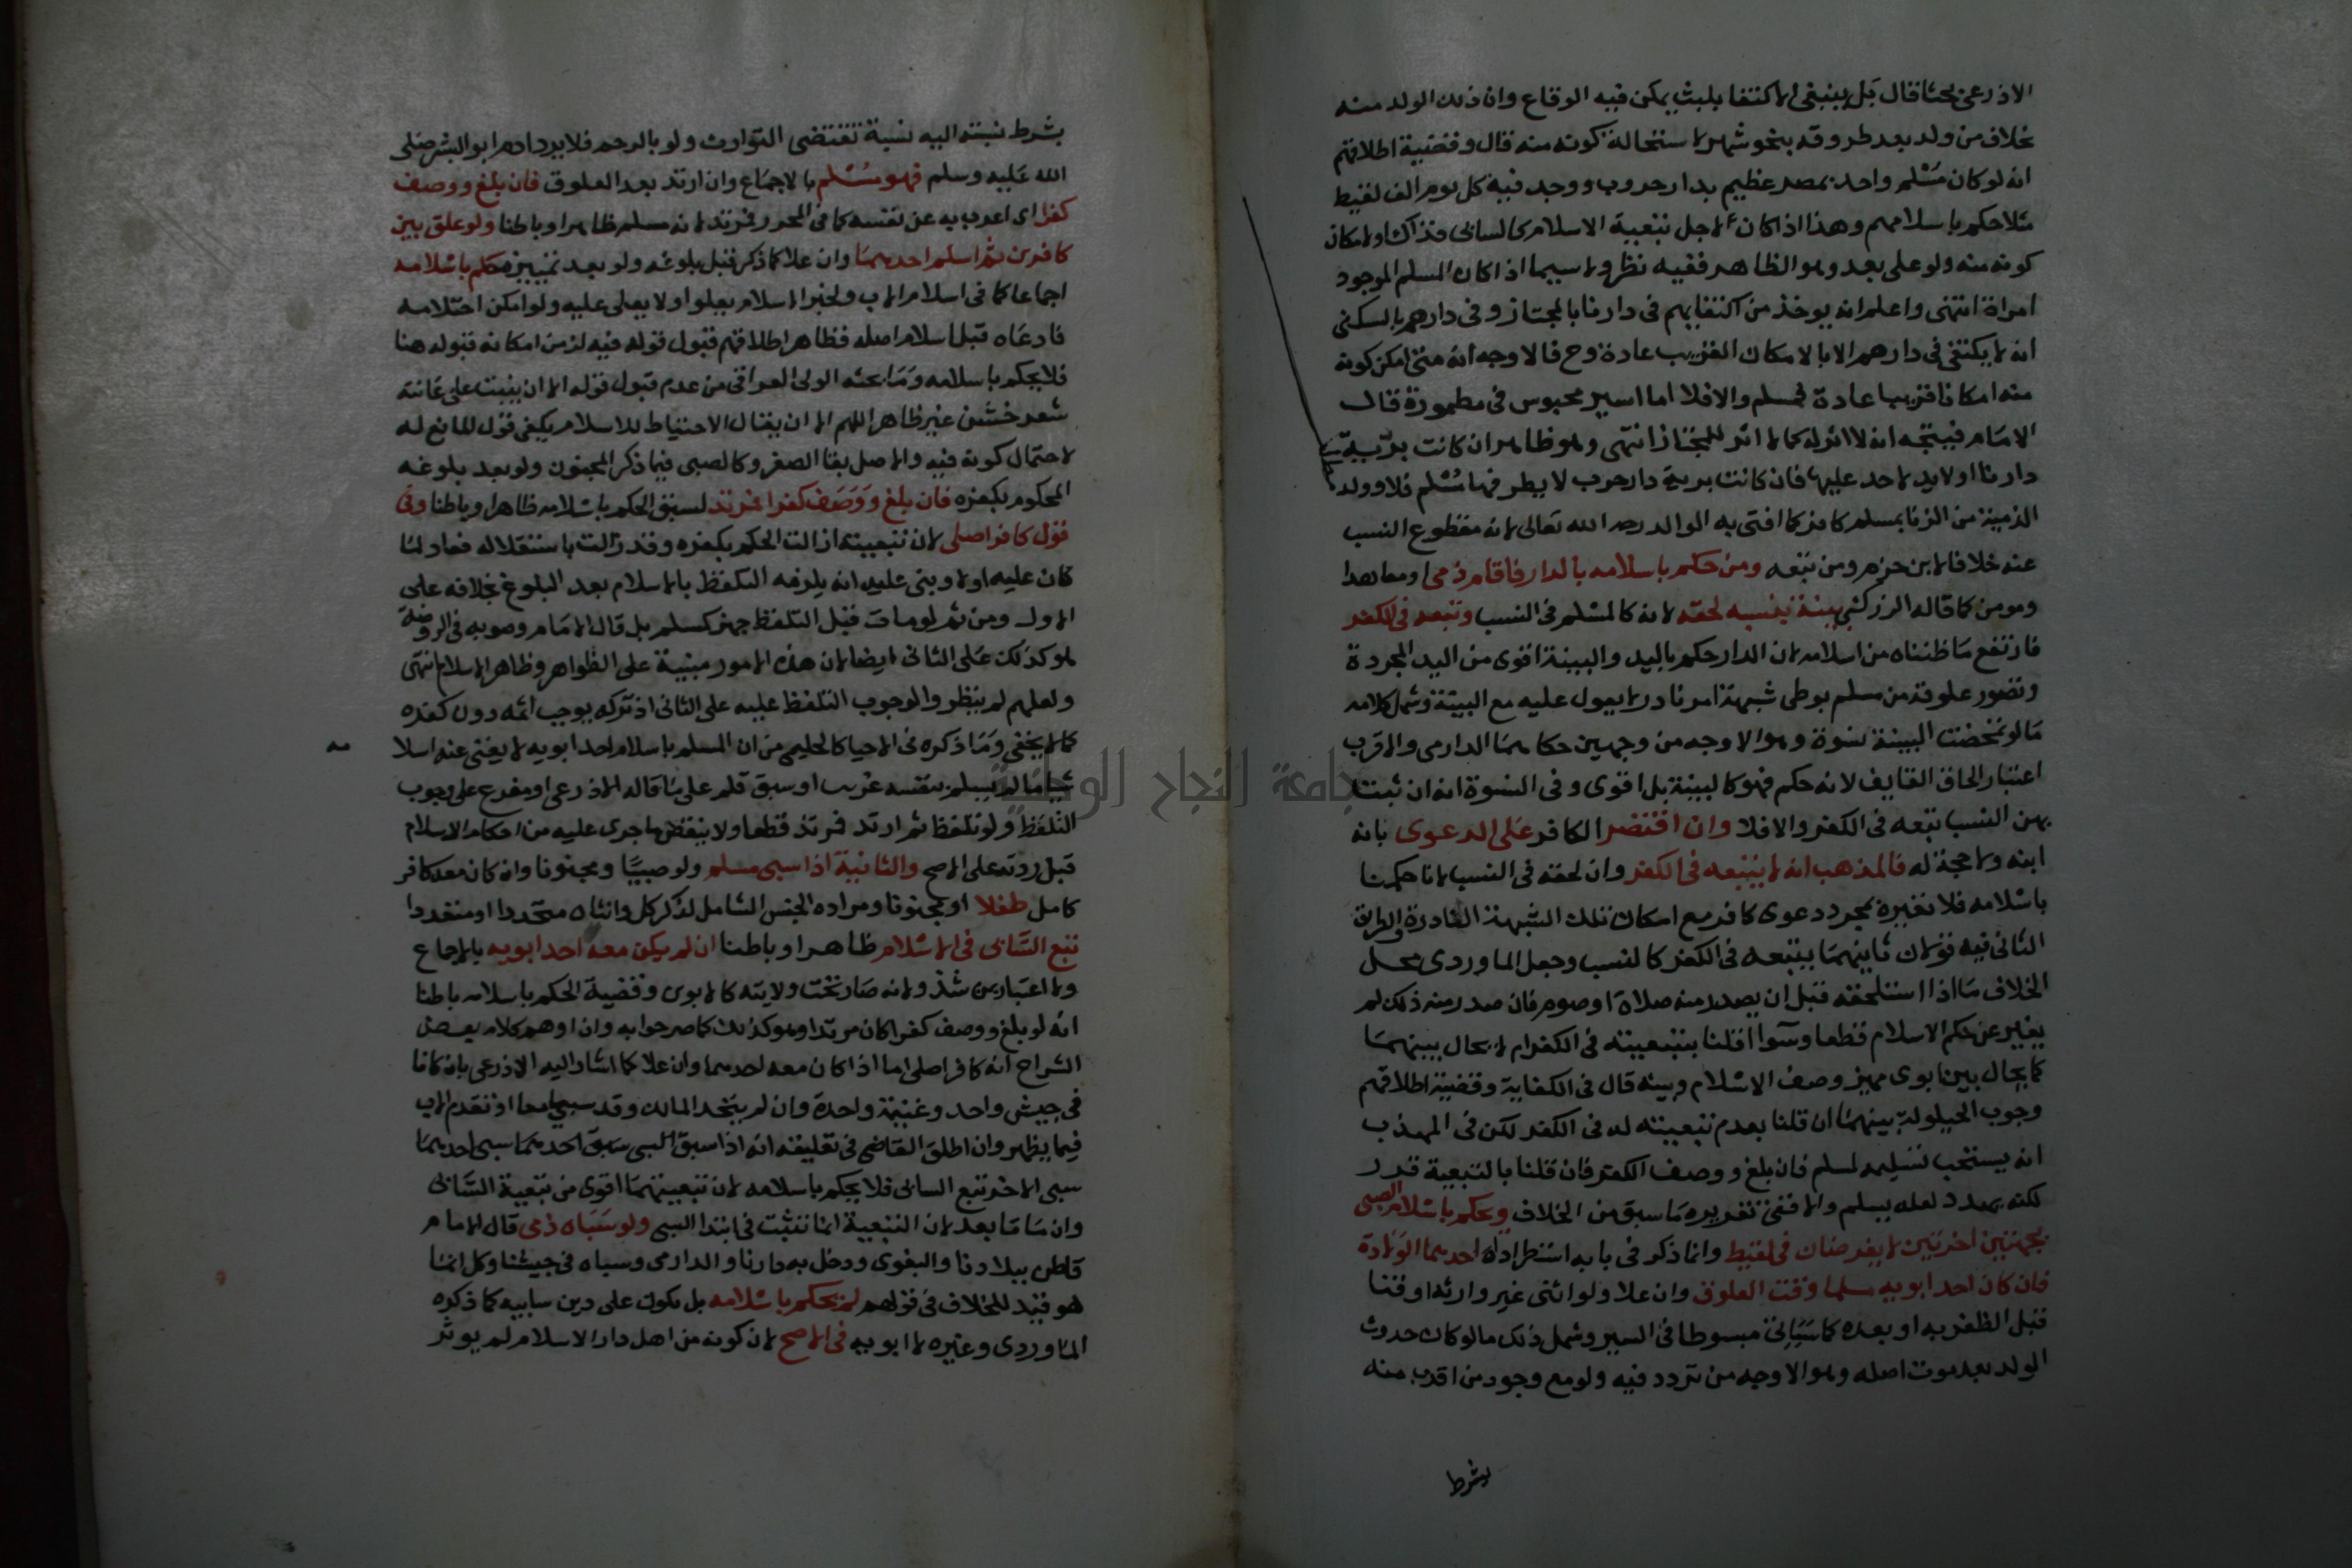 الاذرعي بحثا قال بل ينبغي الاكتفا بلبث يمكن فيه الوقاع وان ذلك الولد منه
بخلاف من ولد بعد طروقه بنحو شهر لاستحالة كونه منه قال وقضية اطلاقهم
انه لو كان مسلم واحد بمصر عظيم بدار حرب ووجد فيه كل يوم الف لقيط
مثلا حكم باسلامهم وهذا اذا كان لاجل تبعية الاسلام كالسابي فذاك او لامكان
كونه منه ولو على بعد وهو الظاهر ففيه نظر ولا سيما اذا كان المسلم الموجود
امراة انتهى واعلم انه يوخذ من اكتفايهم في دارنا بالمجتاز وفي دارهم بالسكنى
انه لا يكتفى في دارهم الا بالامكان القريب عادة وح فالاوجه انه متى امكن كونه
منه امكانا قريبا عادة فمسلم والا فلا اما اسير محبوس في مطمورة قال
الامام فيتجه انه لا اثر له كما لا اثر للمجتاز انتهى وهو ظاهر ان كانت برية
دارنا او لا يد لاحد عليها فان كانت برية دار حرب لا يطرقها مسلم فلا وولد
الذمية من الزنا بمسلم كافر كما افتى به الوالد رحمه الله تعالى لانه مقطوع النسب
عنه خلافا لابن حزم ومن تبعه ومن حكم باسلامه بالدار فاقام ذمي او معاهد
ومومن كما قاله الزركشي بينة بنسبه لحقه لانه كالمسلم في النسب وتبعه في الكفر
فارتفع ما ظنناه من اسلامه لان الدار حكم باليد والبينة اقوى من اليد المجردة
وتصور علوقه من مسلم بوطي شبهة امر نادر لا يعول عليه مع البينة وشمل كلامه
ما لو تمحضت البينة نسوة وهو الاوجه من وجهين حكاهما الدارمي والاقرب
اعتبار الحاق القايف لانه حكم فهو كالبينة بل اقوى وفي النسوة انه ان ثبت
بهن النسب تبعه في الكفر والا فلا وان اقتصر الكافر على الدعوى بانه
ابنه ولا حجة له فالمذهب انه لا يتبعه في الكفر وان لحقه في النسب لانا حكمنا
باسلامه فلا نغيره بمجرد دعوى كافر مع امكان تلك الشبهة النادرة والطريق
الثاني فيه قولان ثانيهما يتبعه في الكفر كالنسب وجعل الماوردي محل
الخلاف ما اذا استلحقه قبل ان يصدر منه صلاة او صوم فان صدر منه ذلك لم
يغير عن حكم الاسلام قطعا وسوا اقلنا بتبعيته في الكفر ام لا يحال بينهما
كما يحال بين ابوي مميز وصف الاسلام وبينه قال في الكفاية وقضية اطلاقهم
وجوب الحيلولة بينهما ان قلنا بعدم تبعيته له في الكفر لكن في المهذب
انه يستحب تسليمه لمسلم فان بلغ ووصف الكفر فان قلنا بالتبعية قرر
لكنه يهدد لعله يسلم والا ففي تقريره ما سبق من الخلاف ويحكم باسلام الصبي
بجهتين اخرتين لا يفرضان في لقيط وانما ذكر في بابه استطرادا احدهما الولادة
فان كان احد ابويه مسلما وقت العلوق وان علا ولو انثى غير وارثه او قنا
قبل الظفر به او بعده كما سياتي مبسوطا في السير وشمل ذلك ما لو كان حدوث
الولد بعد موت اصله وهو الاوجه من تردد فيه ولو مع وجود من اقرب منه
بشرط
بشرط نسبته اليه نسبة تقتضي التوارث ولو بالرحم فلا يرد ادم ابو البشر صلى
الله عليه وسلم فهو مسلم بالاجماع وان ارتد بعد العلوق فان بلغ ووصف
كفرا اي اعرب به عن نفسه كما في المحرر فمرتد لانه مسلم ظاهرا وباطنا ولو علق بين
كافرين ثم اسلم احدهما وان علا كما ذكر قبل بلوغه ولو بعد تمييزه حكم باسلامه
اجماعا كما في اسلام الاب ولخبر الاسلام يعلو ولا يعلى عليه ولو امكن احتلامه
فادعاه قبل اسلام اصله فظاهر اطلاقهم قبول قوله فيه لزمن امكانه قبوله هنا
فلا يحكم باسلامه وما بحثه الولي العراقي من عدم قبول قوله الا ان ينبت على عانته
شعر خشن غير ظاهر اللهم الا ان يقال الاحتياط للاسلام يلغي قوله المانع له
لاحتمال كونه فيه والاصل بقا الصغر وكالصبي فيما ذكر المجنون ولو بعد بلوغه
المحكوم بكفره فان بلغ ووصف كفرا فمرتد لسبق الحكم باسلامه ظاهرا وباطنا وفي
قول كافر اصلي لان تبعيته ازالت الحكم بكفره وقد زالت باستقلاله فعاد لما
كان عليه اولا وبنى عليه انه يلزمه التلفظ بالاسلام بعد البلوغ بخلافه على
الاول ومن ثم لو مات قبل التلفظ جهز كمسلم بل قال الامام وصوبه في الروضة
هو كذلك على الثاني ايضا لان هذه الامور مبنية على الظواهر وظاهر الاسلام انتهى
ولعلهم لم ينظروا لوجوب التلفظ عليه على الثاني اذ تركه يوجب اثمه دون كفره
كما لا يخفى وما ذكره في الاحيا كالحليمي من ان المسلم باسلام احد ابويه لا يغني عنه اسلا
مه
شيا ما لم يسلم بنفسه غريب او سبق قلم على ما قاله الاذرعي او مفرع على وجوب
التلفظ ولو تلفظ ثم ارتد فمرتد قطعا ولا ينقض ما جرى عليه من احكام الاسلام
قبل ردته على الاصح والثانية اذا سبى مسلم ولو صبيا ومجنونا وان كان معه كافر
كامل طفلا او مجنونا ومراده الجنس الشامل لذكر كل وانثاه متحدا او متعددا
تبع السابي في الاسلام ظاهرا وباطنا ان لم يكن معه احد ابويه بالاجماع
ولا اعتبار بمن شذ ولانه صار تحت ولايته كالابوين وقضية الحكم باسلامه باطنا
انه لو بلغ ووصف كفرا كان مرتدا وهو كذلك كما صرحوا به وان اوهم كلام بعض
الشراح انه كافر اصلي اما اذا كان معه احدهما وان علا كما اشار اليه الاذرعي بان كانا
في جيش واحد وغنيمة واحدة وان لم يتحد المالك وقد سبيا معا او تقدم الاب
فيما يظهر وان اطلق القاضي في تعليقه انه اذا سبق السبي سبق احدهما سبي احدهما
سبي الاخر تبع السابي فلا يحكم باسلامه لان تبعيتهما اقوى من تبعية السابي
وان ماتا بعد لان التبعية انما تثبت في ابتدا السبي ولو سباه ذمي قال الامام
قاطن ببلادنا والبغوي ودخل به دارنا والدارمي وسباه في جيشنا وكل انما
هو قيد للخلاف في قولهم لم يحكم باسلامه بل يكون على دين سابيه كما ذكره
الماوردي وغيره لا ابويه في الاصح لان كونه من اهل دار الاسلام لم يوثر
جامعة النجاح الوطنية